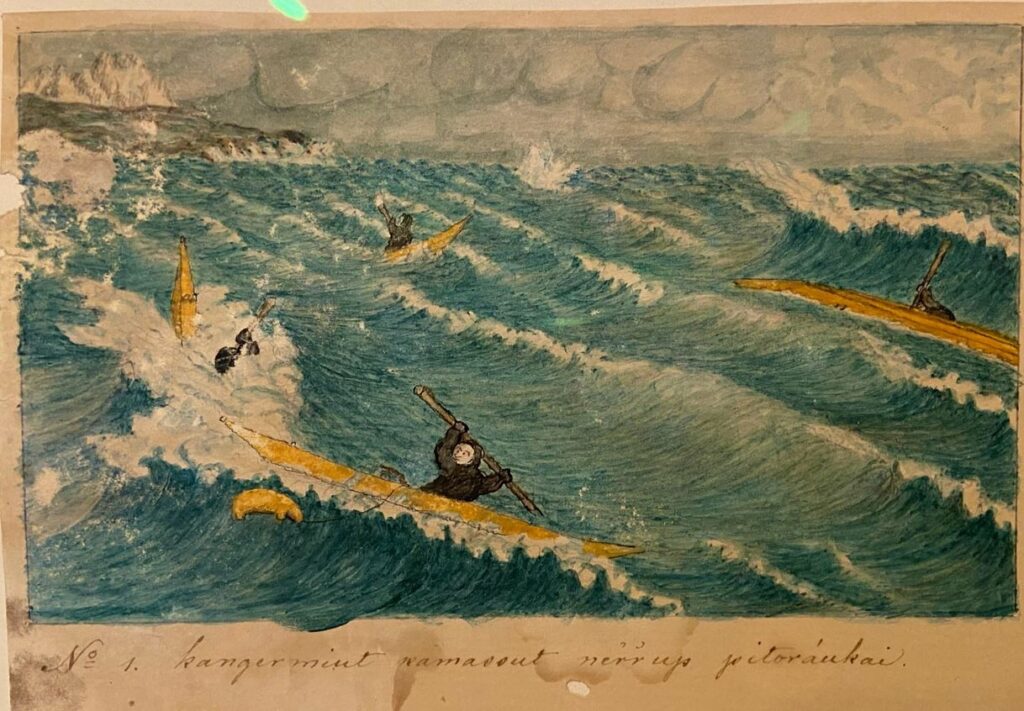 Nº 1. kangermiut ĸamassut nėr̆r̆up pitoráukai.